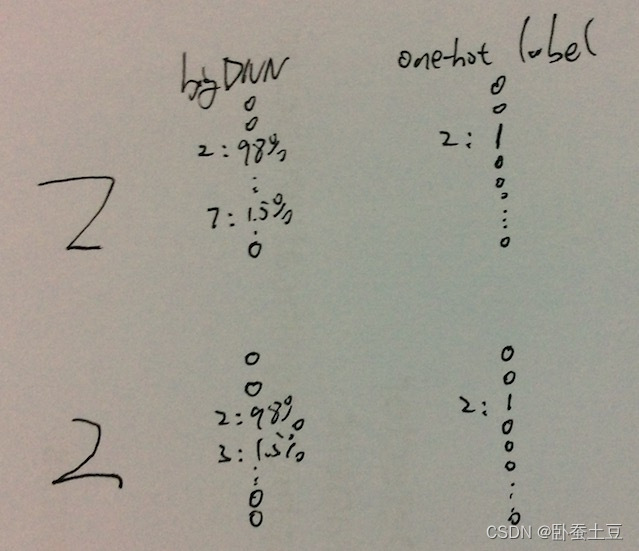 big DNN one-hot label
0 0
0 0
2 : 98% 2 : 1
⋮ 0
7 : 1.5% 0
⋮
0 0
2
0 0
0 0
2 : 98% 2 : 1
3 : 1.5% 0
⋮ 0
0 0
⋮
0 0
2
CSDN @卧蚕土豆